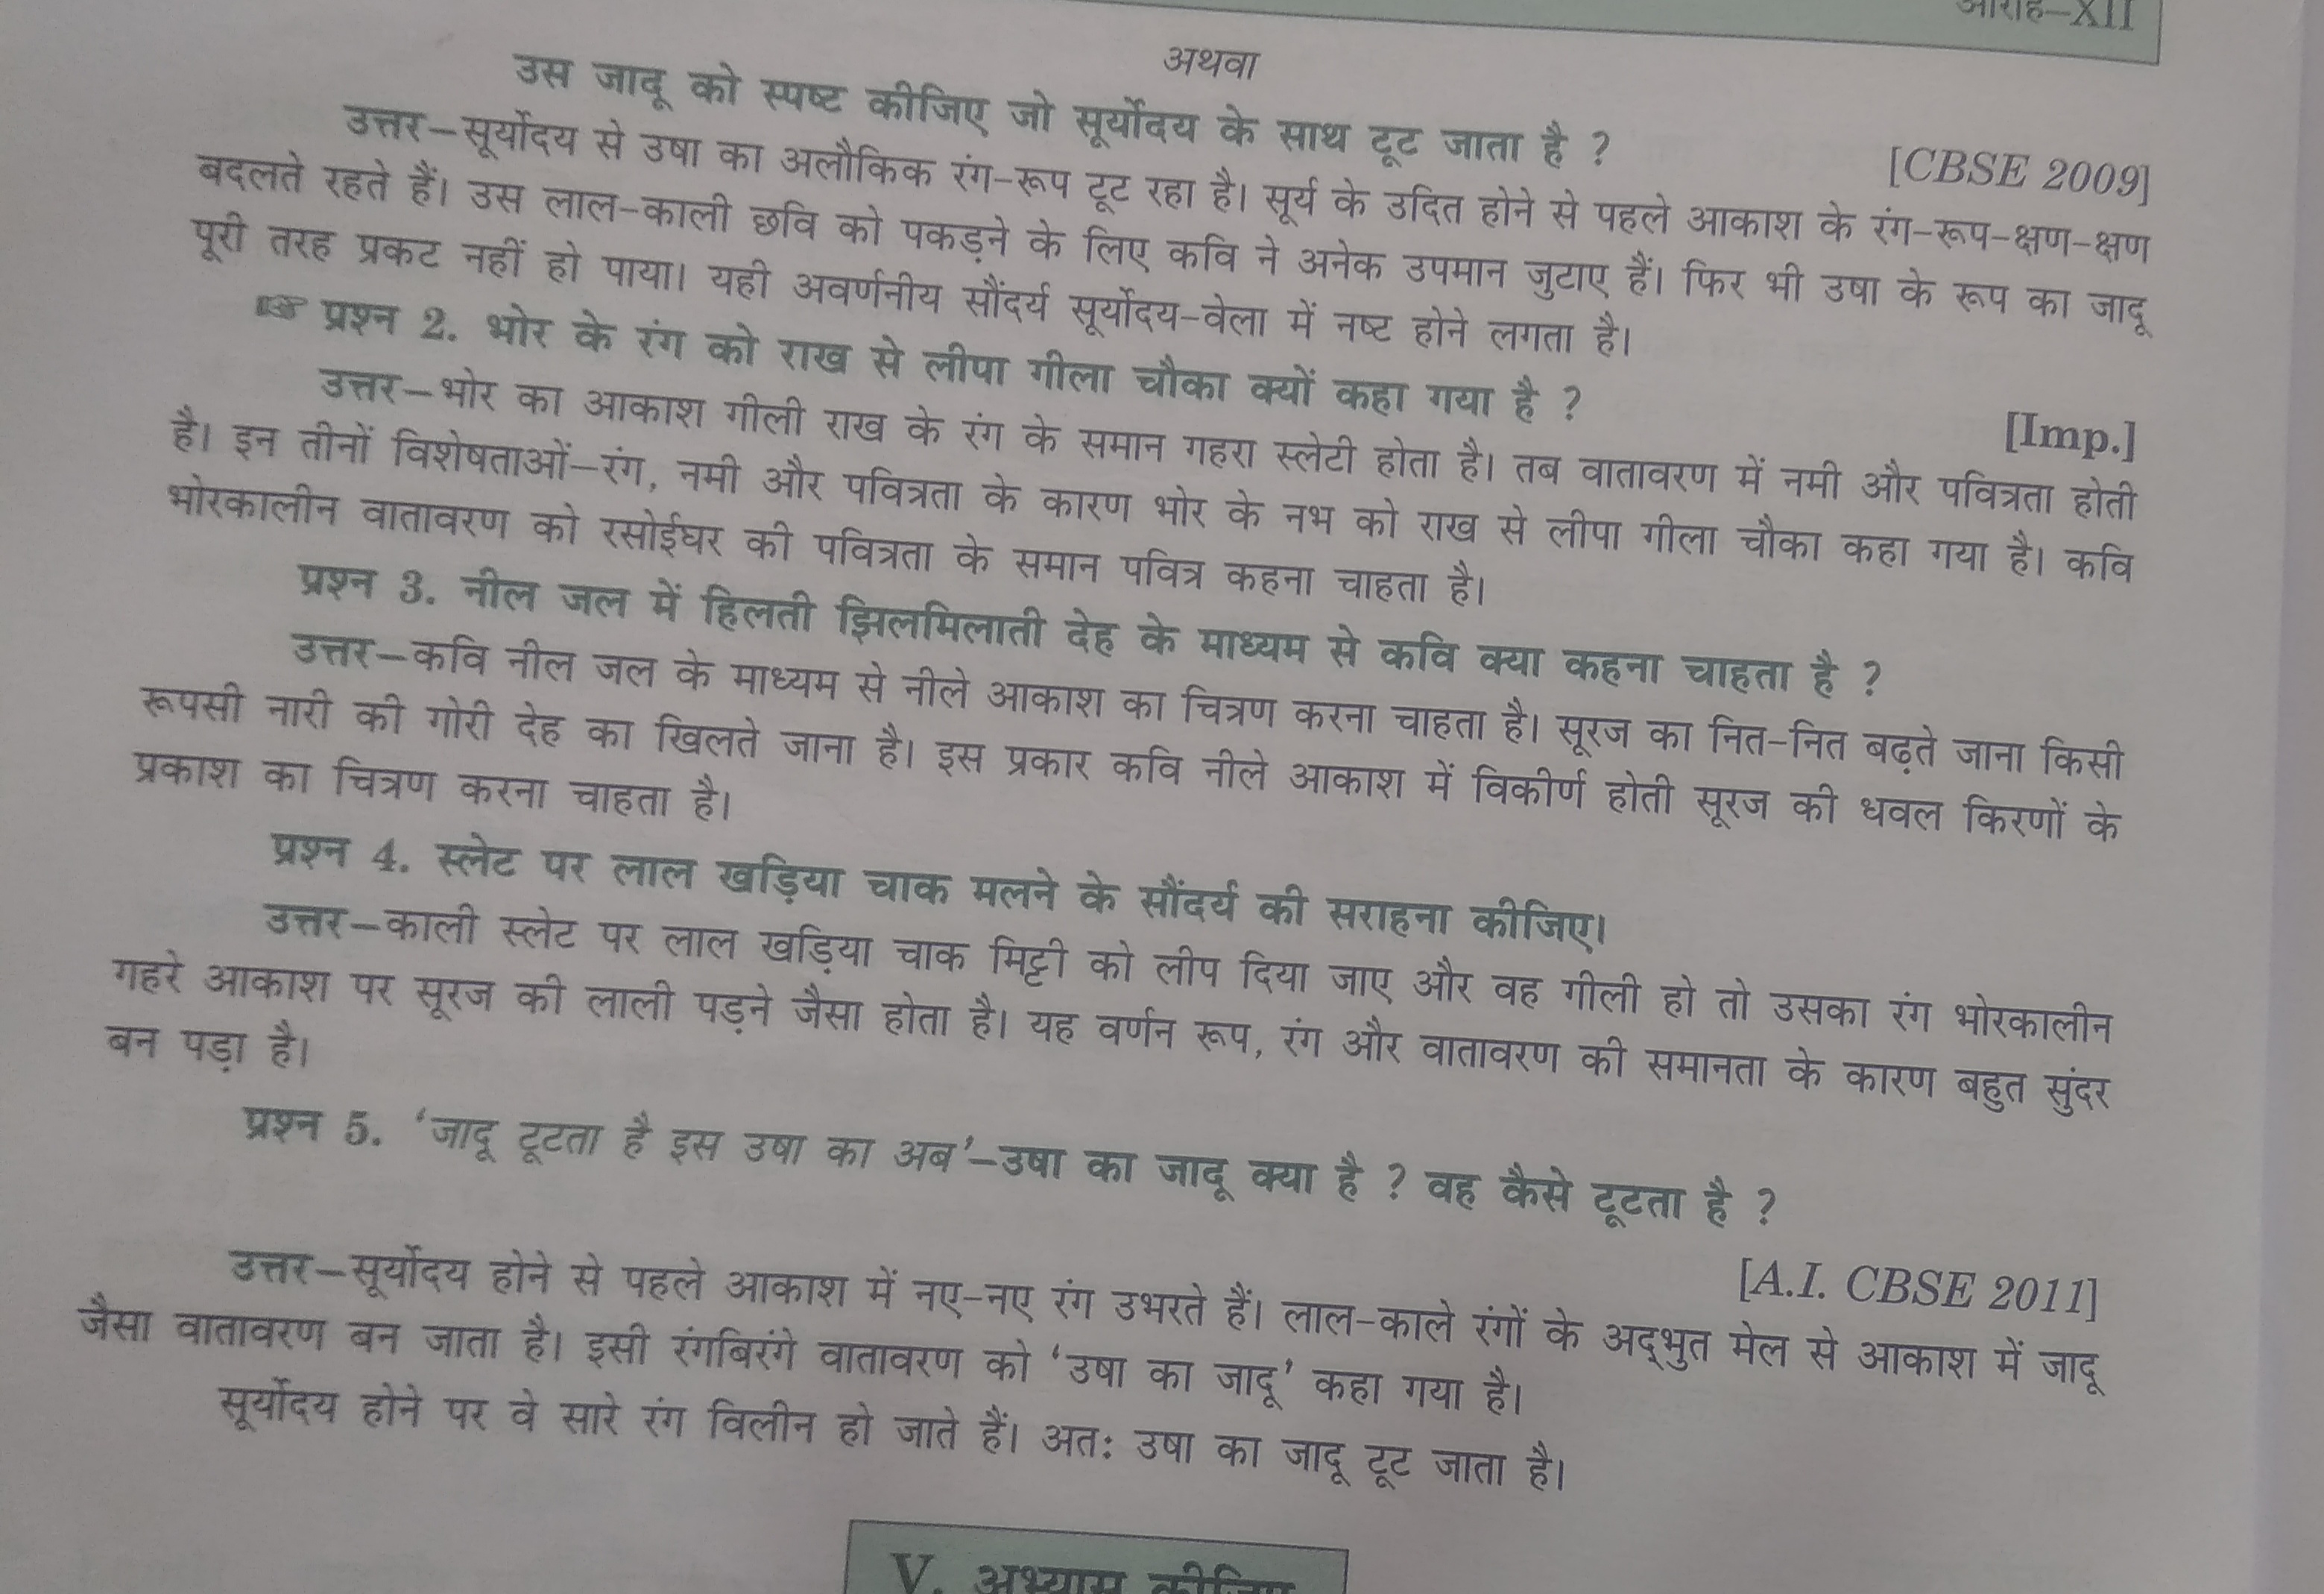 आरोह–XII
अथवा
उस जादू को स्पष्ट कीजिए जो सूर्योदय के साथ टूट जाता है ?
[CBSE 2009]
उत्तर–सूर्योदय से उषा का अलौकिक रंग-रूप टूट रहा है। सूर्य के उदित होने से पहले आकाश के रंग-रूप-क्षण-क्षण
बदलते रहते हैं। उस लाल-काली छवि को पकड़ने के लिए कवि ने अनेक उपमान जुटाए हैं। फिर भी उषा के रूप का जादू
पूरी तरह प्रकट नहीं हो पाया। यही अवर्णनीय सौंदर्य सूर्योदय-वेला में नष्ट होने लगता है।
☞ प्रश्न 2. भोर के रंग को राख से लीपा गीला चौका क्यों कहा गया है ?
[Imp.]
उत्तर–भोर का आकाश गीली राख के रंग के समान गहरा स्लेटी होता है। तब वातावरण में नमी और पवित्रता होती
है। इन तीनों विशेषताओं–रंग, नमी और पवित्रता के कारण भोर के नभ को राख से लीपा गीला चौका कहा गया है। कवि
भोरकालीन वातावरण को रसोईघर की पवित्रता के समान पवित्र कहना चाहता है।
प्रश्न 3. नील जल में हिलती झिलमिलाती देह के माध्यम से कवि क्या कहना चाहता है ?
उत्तर–कवि नील जल के माध्यम से नीले आकाश का चित्रण करना चाहता है। सूरज का नित-नित बढ़ते जाना किसी
रूपसी नारी की गोरी देह का खिलते जाना है। इस प्रकार कवि नीले आकाश में विकीर्ण होती सूरज की धवल किरणों के
प्रकाश का चित्रण करना चाहता है।
प्रश्न 4. स्लेट पर लाल खड़िया चाक मलने के सौंदर्य की सराहना कीजिए।
उत्तर–काली स्लेट पर लाल खड़िया चाक मिट्टी को लीप दिया जाए और वह गीली हो तो उसका रंग भोरकालीन
गहरे आकाश पर सूरज की लाली पड़ने जैसा होता है। यह वर्णन रूप, रंग और वातावरण की समानता के कारण बहुत सुंदर
बन पड़ा है।
प्रश्न 5. ‘जादू टूटता है इस उषा का अब’–उषा का जादू क्या है ? वह कैसे टूटता है ?
[A.I. CBSE 2011]
उत्तर–सूर्योदय होने से पहले आकाश में नए-नए रंग उभरते हैं। लाल-काले रंगों के अद्‌भुत मेल से आकाश में जादू
जैसा वातावरण बन जाता है। इसी रंगबिरंगे वातावरण को ‘उषा का जादू’ कहा गया है।
सूर्योदय होने पर वे सारे रंग विलीन हो जाते हैं। अतः उषा का जादू टूट जाता है।
V. अभ्यास कीजिए